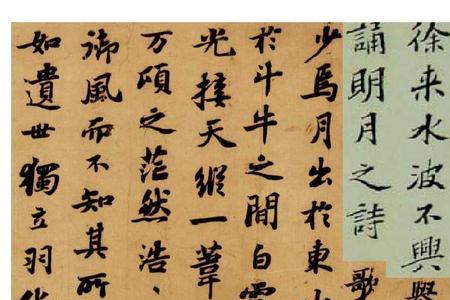 徐来水波不興舉
誦明月之詩歌
少焉月出於東山
於斗牛之間白露
光接天縱一葦
万頃之茫然浩〻
御風而不知其所
如遺世獨立羽化